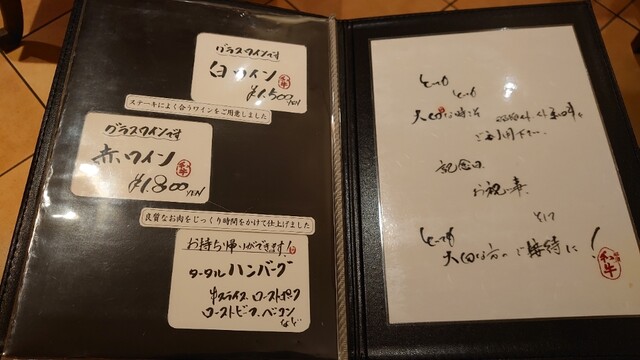 グラスワインです
白ワイン
¥1.500YEN
ステーキによく合うワインをご用意しました
グラスワインです
赤ワイン
¥1800YEN
良質なお肉をじっくり時間をかけて仕上げました
お持ち帰りができます!
タータルハンバーグ
牛スライス、ローストポーク
ローストビーフ、ベーコン
など
とっても
とっても
大切な時は
ご利用下さい
記念日
お祝い事
とっても
とっても
大切な方のご接待に!
和牛